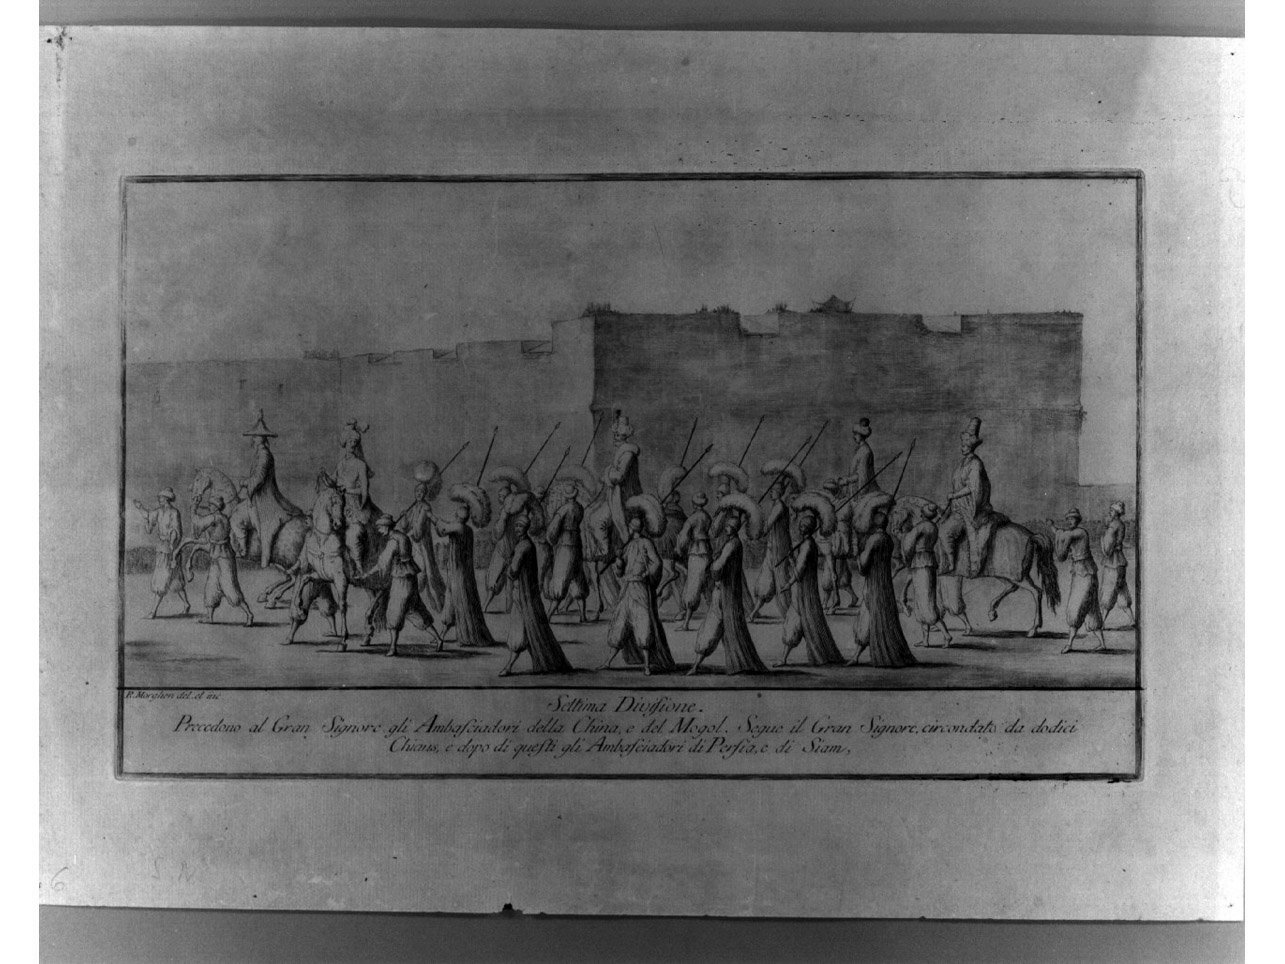 R. Morghen del. et inc.
Settima Divisione.
Precedono al Gran Signore gli Ambasciadori della China, e del Mogol. Segue il Gran Signore, circondato da dodici
Chiaus, e dopo di questi gli Ambasciadori di Persia, e di Siam,
6